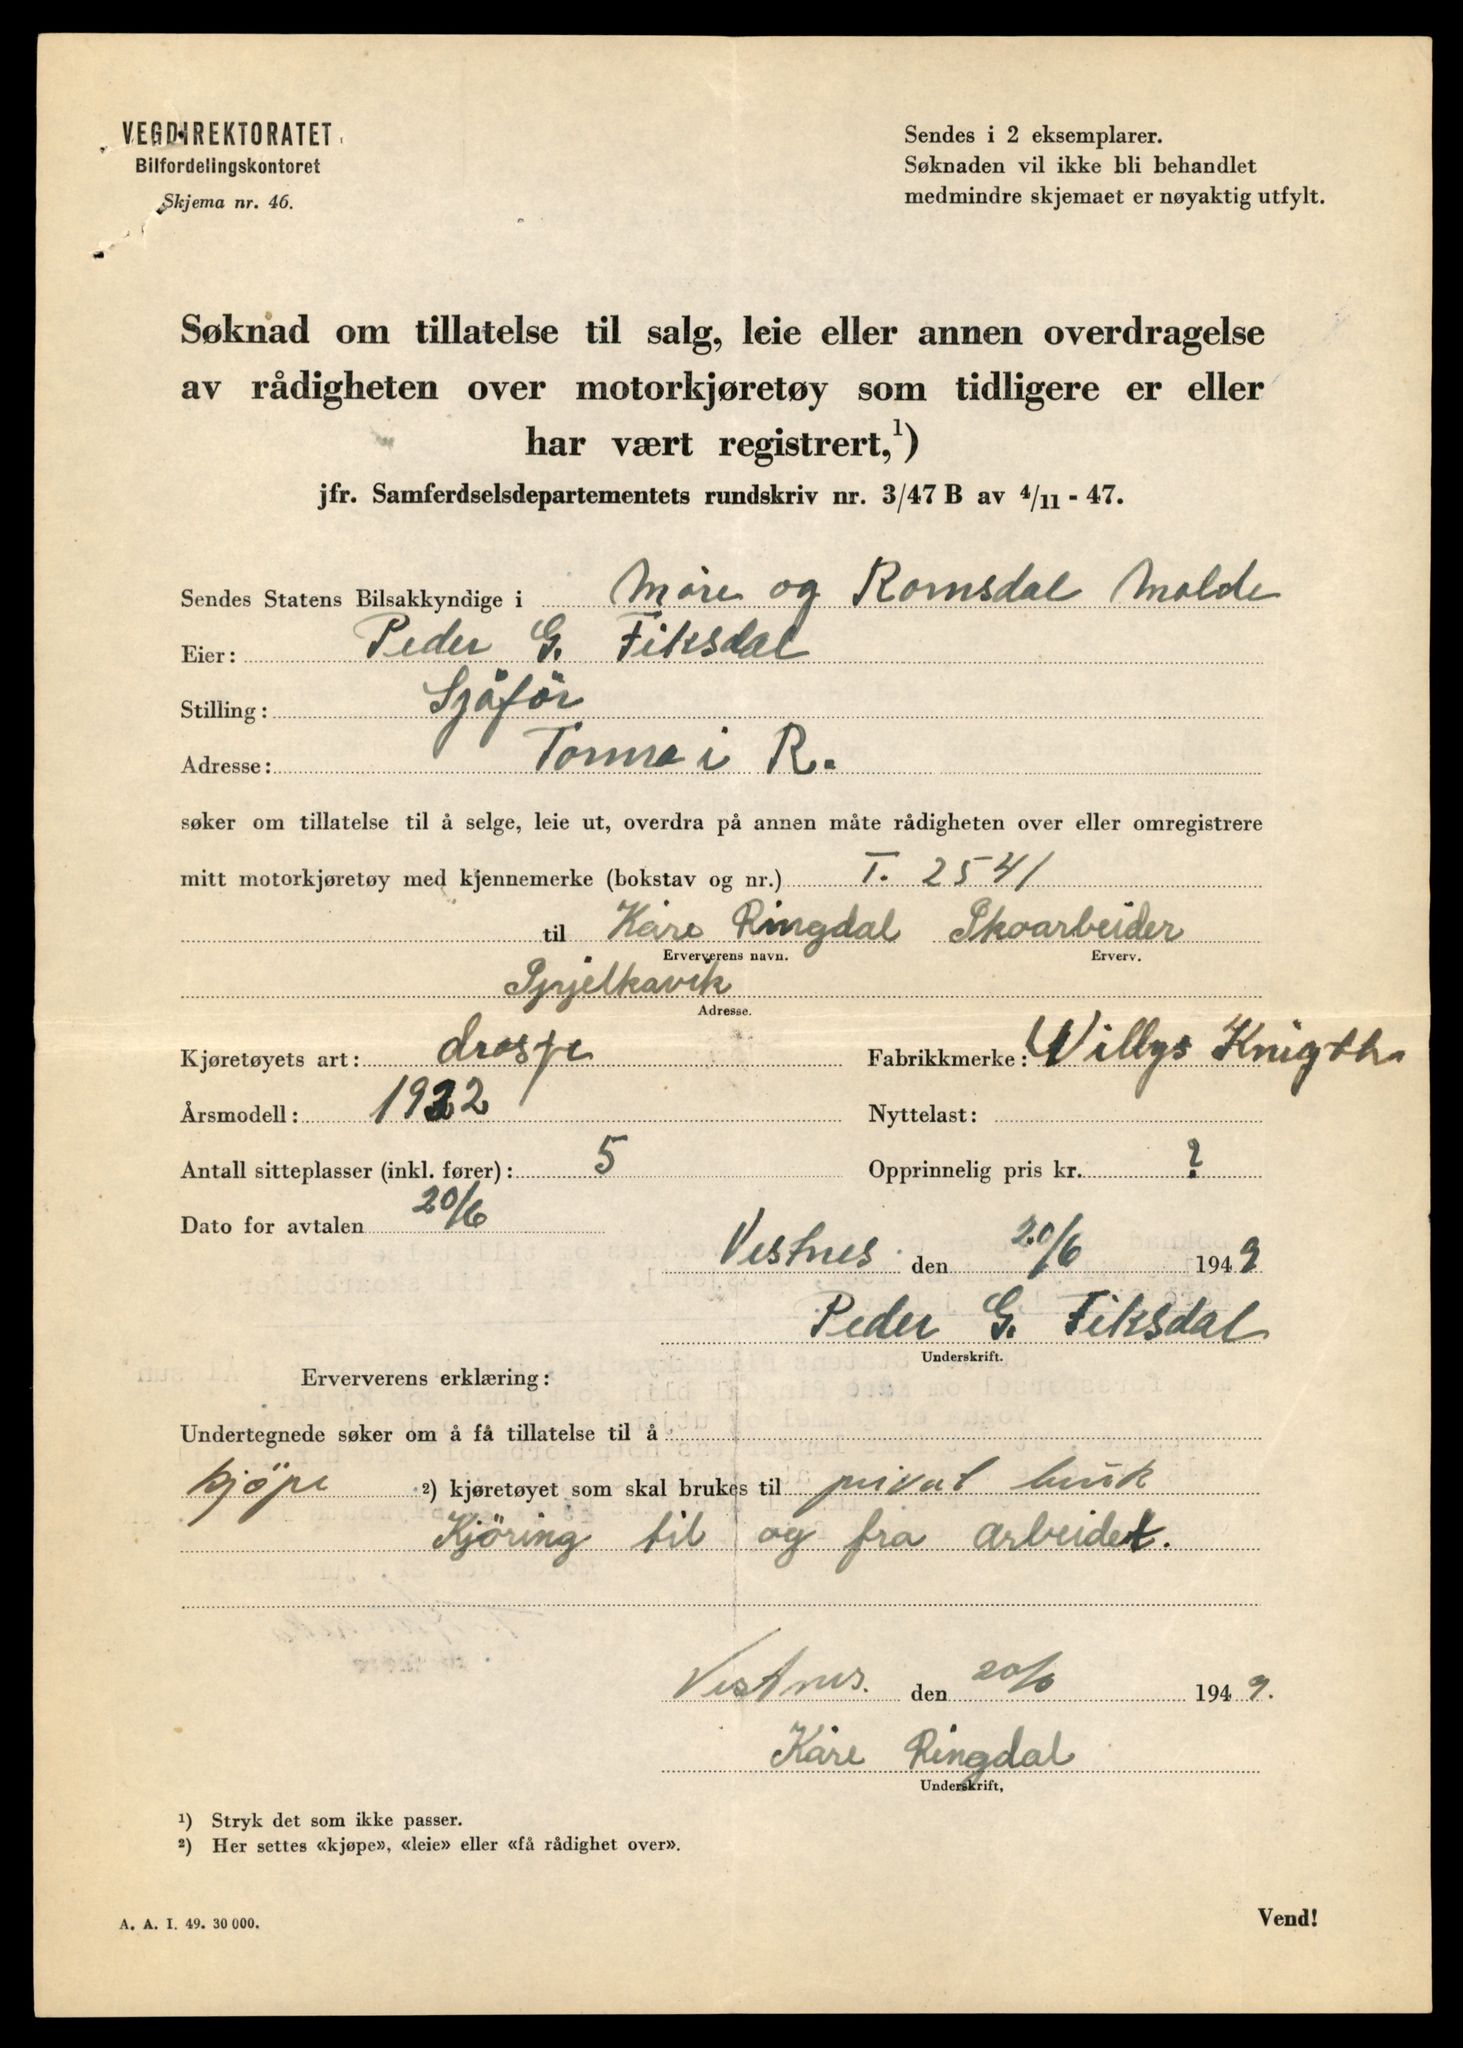 VEGDIREKTORATET
Bilfordelingskontoret
Skjema nr. 46.
Sendes i 2 eksemplarer.
Søknaden vil ikke bli behandlet
medmindre skjemaet er nøyaktig utfylt.
Søknad om tillatelse til salg, leie eller annen overdragelse
av rådigheten over motorkjøretøy som tidligere er eller
har vært registrert,¹)
jfr. Samferdselsdepartementets rundskriv nr. 3/47 B av 4/11 - 47.
Sendes Statens Bilsakkyndige i Møre og Romsdal Molde
Eier: Peder G. Fiksdal
Stilling: Sjåför
Adresse: i R.
søker om tillatelse til å selge, leie ut, overdra på annen måte rådigheten over eller omregistrere
mitt motorkjøretøy med kjennemerke (bokstav og nr.) T. 2541
til Kåre Ringdal Skoarbeider
Erververens navn. Erverv.
Spjelkavik
Adresse.
Kjøretøyets art: drosje Fabrikkmerke: Willys Knigth
Årsmodell: Nyttelast:
Antall sitteplasser (inkl. fører): 5 Opprinnelig pris kr. ?
Dato for avtalen 20/6
Vestnes den 20/6 1949
Peder G. Fiksdal
Underskrift.
Erververens erklæring:
Undertegnede søker om å få tillatelse til å
kjöpe ²) kjøretøyet som skal brukes til privat bruk
Kjöring til og fra arbeidet.
Vestnes. den 20/6 1949.
Kåre Ringdal
Underskrift,
¹) Stryk det som ikke passer.
²) Her settes «kjøpe», «leie» eller «få rådighet over».
A. A. I. 49. 30 000.
Vend!